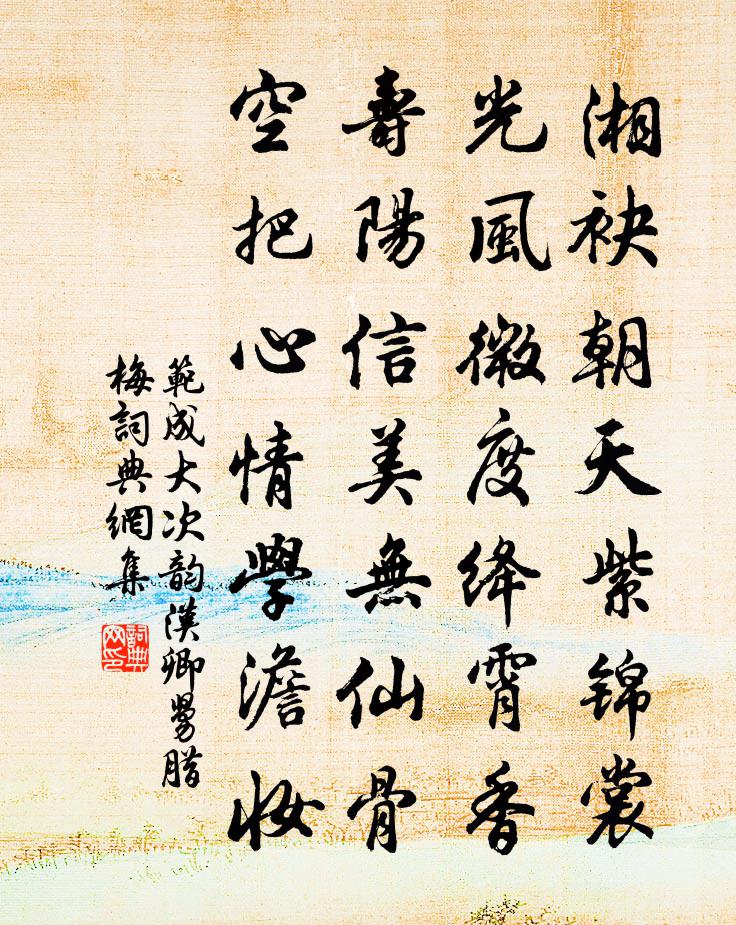 湘袂朝天紫锦裳
光風微度绛霄香
壽陽信美無仙骨
空把心情學澹妝
範成大次韵漢卿舅腊
梅詞典網集
詞典
网印